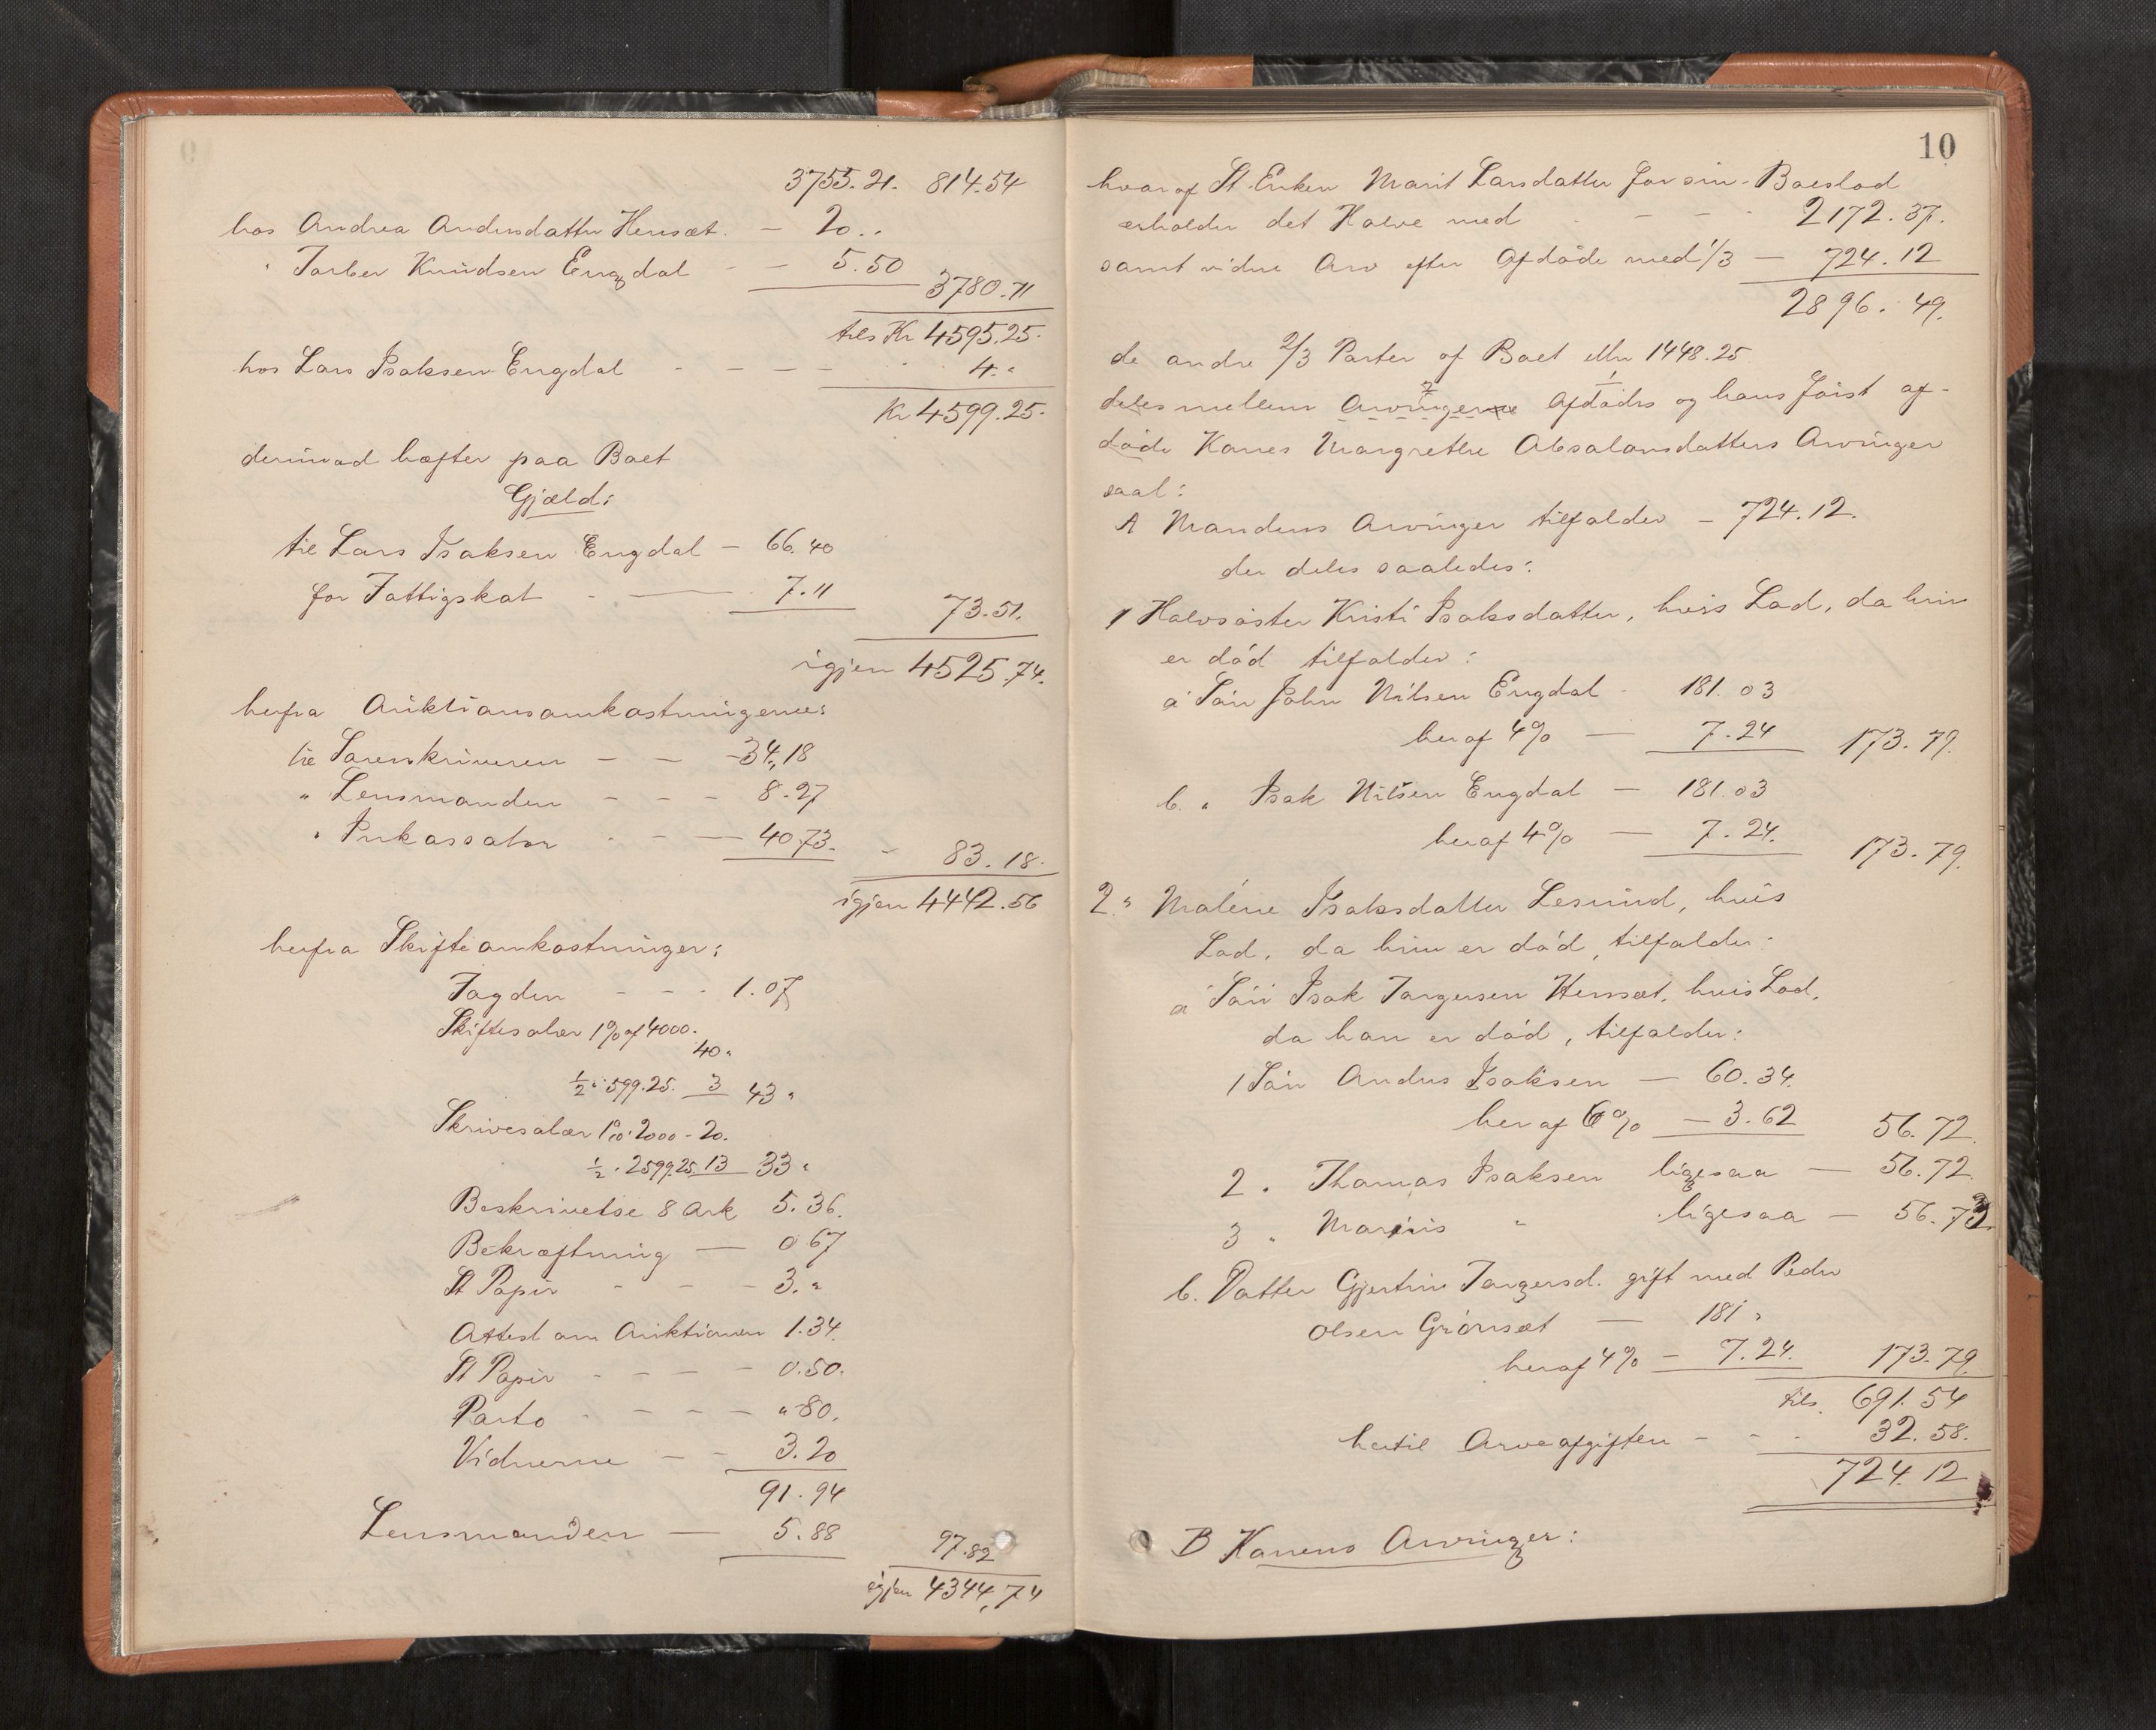 3755.21. 814.54
hos Andrea Andersdatter Hensæt. — 20..
" Torber Knudsen Engdal - - 5.50
3780.71
tils Kr 4595.25.
hos Lars Isaksen Engdal - - - - 4."
Kr 4599.25.
derimod hæfter paa Boet
Gjæld:
til Lars Isaksen Engdal — 66.40
for Fattigskat - — 7.11
73.51.
igjen 4525.74.
herfra Auktionsomkostningerne:
til Sorenskriveren — — 34.18
" Lensmanden - - - 8.27
" Inkassator - - — 40.73.
- 83.18.
igjen 4442.56
herfra Skifteomkostninger:
Fogden - - - 1.07
Skiftesalær 1% af 4000.
40"
½ " 599.25. 3 43 "
Skrivesalær 1% " 2000 - 20.
½ " 2599.25. 13 33 "
Beskrivelse 8 Ark 5.36.
Bekræftning — 0.67
St Papir - - - 3."
Attest om Auktionen 1.34.
St Papir - - - - 0.50.
Porto - - - - "80.
Vidnerne — - 3.20
91.94
Lensmanden — 5.88
97.82
igjen 4344,74
10
hvoraf St. Enken Marit Larsdatter for sin Boeslod
erholder det Halve med - - - - 2172.37.
samt videre Arv efter Afdøde med 1/3 — 724.12
2896.49.
de andre 2/3 Parter af Boet eller 1448.25
deles mellem Arvingerne Afdødes og hans først af-
døde Kones Margrethe Absalonsdatters Arvinger
saal:
A Mandens Arvinger tilfalder — 724.12.
der deles saaledes:
1 Halvsøster Kristi Isaksdatter, hvis Lod, da hun
er død tilfalder:
a Søn John Nilsen Engdal - 181.03
heraf 4% — 7.24 173.79.
b. " Isak Nilsen Engdal — 181.03
heraf 4% — 7.24. 173.79.
2. " Malene Isaksdatter Lesund, hvis
Lod, da hun er død, tilfalder:
a Søn Isak Torgersen Hensæt, hvis Lod,
da han er død, tilfalder:
1 Søn Anders Isaksen — 60.34.
heraf 6% — 3.62 56.72.
2 " Thomas Isaksen ligesaa — 56.72
3 " Marius " ligesaa — 56.73
b. Datter Gjertine Torgersd. gift med Peder
Olsen Grønsæt — 181 "
heraf 4% — 7.24. 173.79.
tils. 691.54
hertil Arveafgiften - - - 32.58.
724.12
B Konens Arvinger: